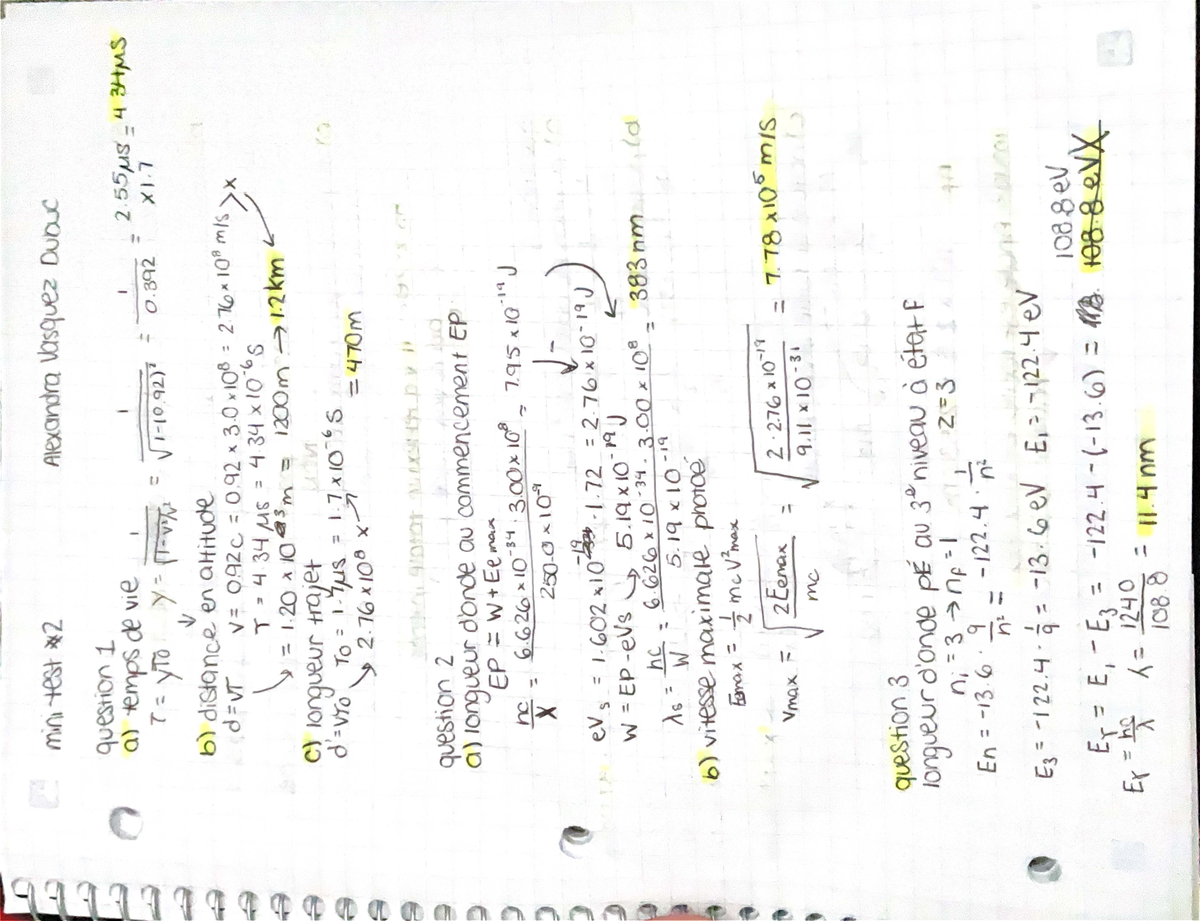 mini-test #2 Alexandra Vasquez Dubuc
question 1
a) temps de vie
T = γT0 γ = 1/√(1-v²/c²) = 1/√(1-(0.92)²) = 1/0.392 = 2.55μs = 4.34μs
x1.7
b) distance en altitude
d = vT v = 0.92c = 0.92 x 3.0 x10⁸ = 2.76 x10⁸ m/s
T = 4.34 μs = 4.34 x 10⁻⁶ s
↳ = 1.20 x 10³ m = 1200m → 1.2km
c) longueur trajet
d' = vT0 T0 = 1.7μs = 1.7 x 10⁻⁶ s
↳ 2.76 x 10⁸ x = 470m
question 2
a) longueur d'onde au commencement EP
EP = W + Ee max
hc/λ = 6.626 x 10⁻³⁴ · 3.00 x 10⁸ / 250.0 x 10⁻⁹ = 7.95 x 10⁻¹⁹ J
eVs = 1.602 x 10⁻¹⁹ · 1.72 = 2.76 x 10⁻¹⁹ J
W = EP - eVs ↳ 5.19 x 10⁻¹⁹ J
λs = hc/W = 6.626 x 10⁻³⁴ · 3.00 x 10⁸ / 5.19 x 10⁻¹⁹ = 383 nm
b) vitesse maximale photoé
Eemax = 1/2 mcv²max
Vmax = √(2Eemax/mc) = √(2 · 2.76 x 10⁻¹⁹ / 9.11 x 10⁻³¹) = 7.78 x10⁵ m/s
question 3
longueur d'onde pÉ au 3ᵉ niveau à état F
ni = 3 → nf = 1 z = 3
En = -13.6 · 9/n² = -122.4 · 1/n²
E3 = -122.4 · 1/9 = -13.6 eV E1 = -122.4 eV
108.8 eV
Eγ = E1 - E3 = -122.4 - (-13.6) = 108.8 eV X
Eγ = hc/λ λ = 1240/108.8 = 11.4 nm